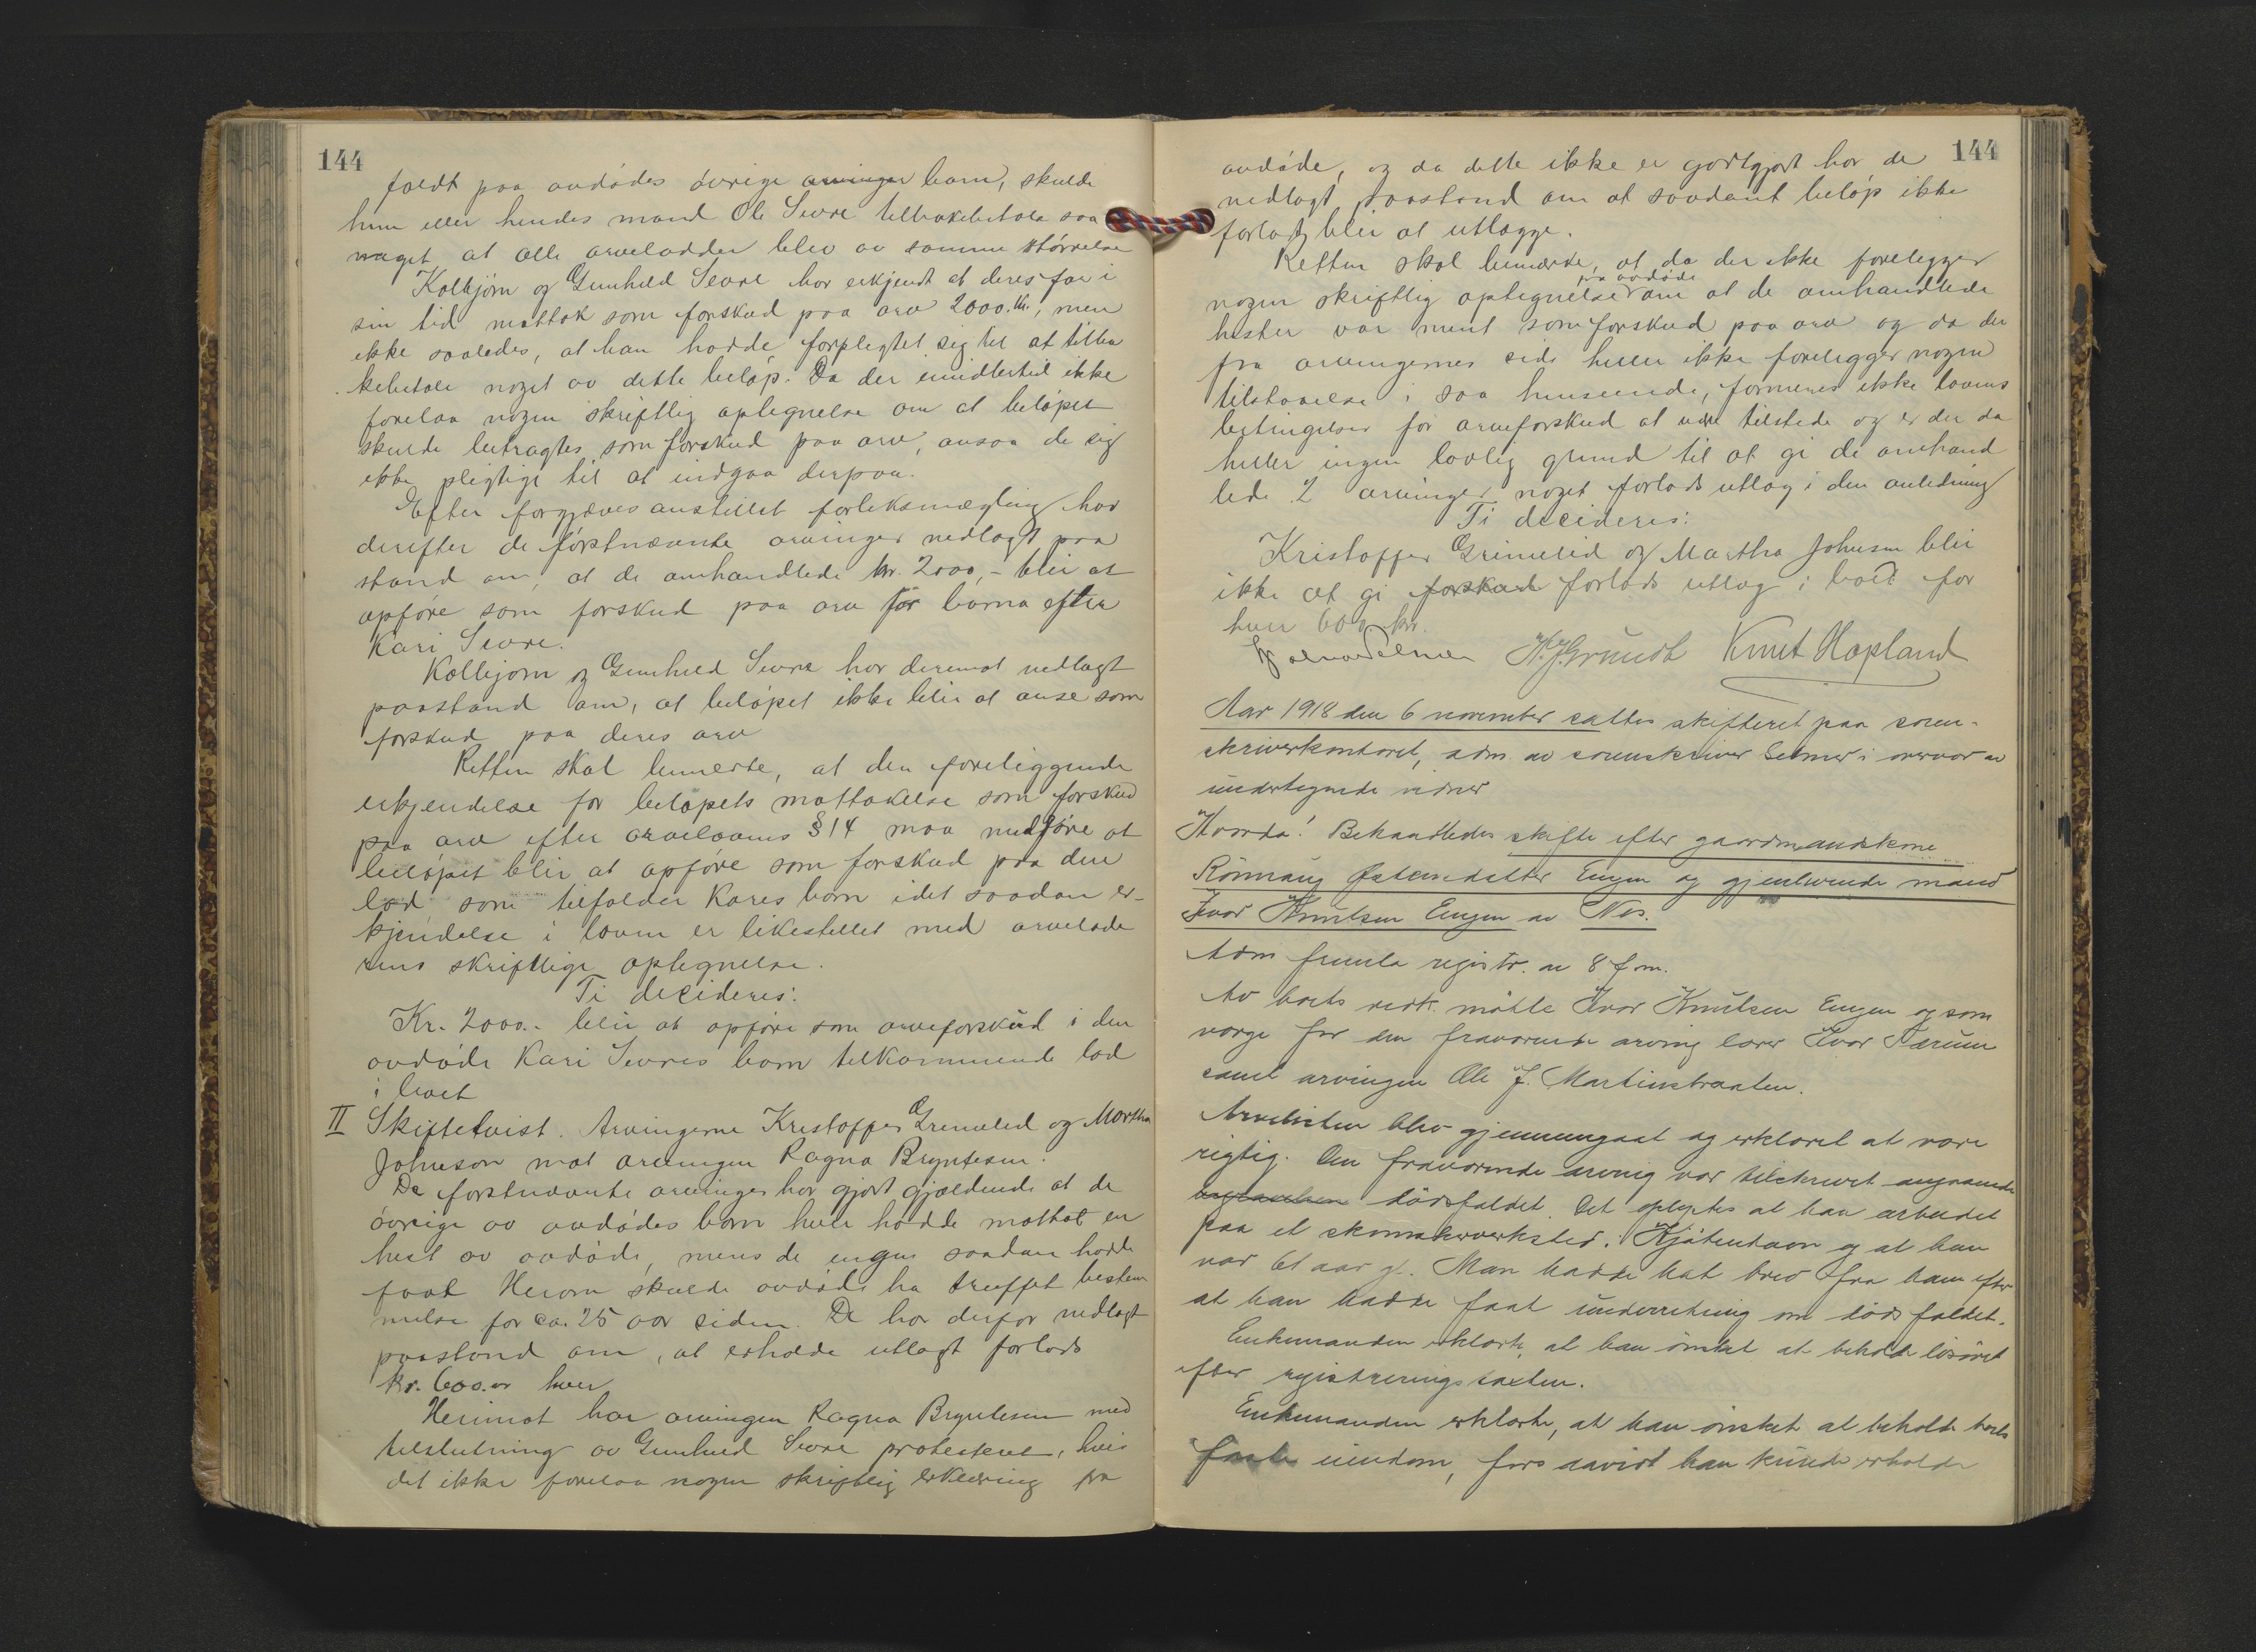 144
faldt paa avdødes øvrige arvinger barn, skulde
hun eller hendes mand Ole Sevre tilbakebetale saa
meget at alle arvelodder blev av samme størrelse
Kolbjørn og Gunhild Sevre har erkjendt at deres far i
sin tid mottok som forskud paa arv 2000. Kr., men
ikke saaledes, at han hadde forpligtet sig til at tilba
kebetale noget av dette beløp. Da der imidlertid ikke
forelaa nogen skriftlig optegnelse om at beløpet
skulde betragtes som forskud paa arv, ansaa de sig
ikke pligtige til at indgaa derpaa.
Efter forgjæves anstillet forliksmægling har
derefter de førstnævnte arvinger nedlagt paa
stand om, at de omhandlede kr. 2000,- blir at
opføre som forskud paa arv for barna efter
Kari Sevre.
Kolbjørn og Gunhild Sevre har derimot nedlagt
paastand om, at beløpet ikke blir at anse som
forskud paa deres arv
Retten skal bemerke, at den foreliggende
erkjendelse for beløpets mottakelse som forskud
paa arv efter arvelovens § 14 maa medføre at
beløpet blir at opføre som forskud paa den
lod som tilfalder Karis barn idet saadan er-
kjendelse i loven er likestillet med arvelade
rens skriftlige optegnelse.
Ti decideres:
Kr. 2000.- blir at opføre som arveforskud i den
avdøde Kari Sevres barn tilkommende lod
i boet
II Skiftetvist. Arvingerne Kristoffer Grimelid og Martha
Johnson mot arvingen Ragna Bryntesen.
De førstnævnte arvinger har gjort gjældende at de
øvrige av avdødes barn hver hadde mottat en
hest av avdøde, mens de ingen saadan hadde
faat Herom skulde avdøde ha truffet bestem
melse for ca. 25 aar siden. De har derfor nedlagt
paastand om, at erholde utlagt forlods
kr. 600.00 hver
Herimot har arvingen Ragna Bryntesen med
tilslutning av Gunhild Sevre protestert, hvis
det ikke forelaa nogen skriftlig erklæring fra
144
avdøde, og da dette ikke er godtgjort har de
nedlagt paastand om at saadant beløp ikke
forlods blir at utlægge.
Retten skal bemærke, at da der ikke foreligger
fra avdøde
nogen skriftlig optegnelse om at de omhandlede
hester var ment som forskud paa arv og da der
fra arvingernes side heller ikke foreligger nogen
tilstaaelse i saa henseende, formenes ikke lovens
betingelser for arveforskud at være tilstede og er der da
heller ingen lovlig grund til at gi de omhand
lede 2 arvinger noget forlods utlæg i den anledning
Ti decideres:
Kristoffer Grimelid og Martha Johnson blir
ikke at gi forskud forlods utlæg i boet for
hver 600 kr.
H.J.Grundt Knut Hopland
Aar 1918 den 6 november sattes skifteret paa soren-
skriverkontoret, adm. av sorenskriver Selmer i overvær av
undertegnede vidner
Hvorda! Behandledes skifte efter gaardmandskone
Rønnaug Østensdatter Engen og gjenlevende mand
Ivar Knutsen Engen av Nes.
Adm fremla registr. av 8 f.m.
Av boets vedk. møtte Ivar Knutsen Engen og som
verge for den fraværende arving lærer Ivar Særum
samt arvingen Ole J. Martinsbraaten.
Arvelisten blev gjennemgaat og erklæret at være
rigtig. Den fraværende arving var tilskrevet angaaende
dødsfaldet. Det oplystes at han arbeidet
paa et skomakerverksted i Kjøbenhavn og at han
var 61 aar gl. Man hadde hat brev fra ham efter
at han hadde faat underretning om dødsfaldet.
Enkemanden erklærte, at han ønsket at beholde løsøret
efter registreringstaxten.
Enkemanden erklærte, at han ønsket at beholde boets
faste eiendom, forsaavidt han kunde erholde